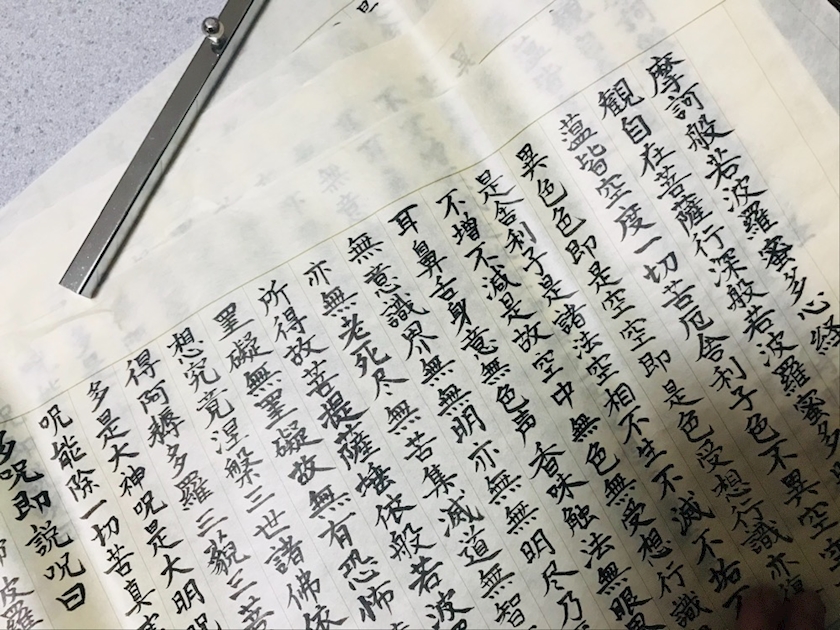 摩訶般若波羅蜜多心経
観自在菩薩行深般若波羅蜜多
蘊皆空度一切苦厄舎利子色不異空
異色色即是空空即是色受想行識亦復
是舎利子是諸法空相不生不滅不垢不
不増不減是故空中無色無受想行識
耳鼻舌身意無色声香味触法無眼界
無意識界無無明亦無無明尽乃
亦無老死尽無苦集滅道無智
所得故菩提薩埵依般若波
罣礙無罣礙故無有恐怖
想究竟涅槃三世諸佛依
得阿耨多羅三藐三菩
多是大神呪是大明呪
呪能除一切苦真実
多呪即説呪曰
波羅